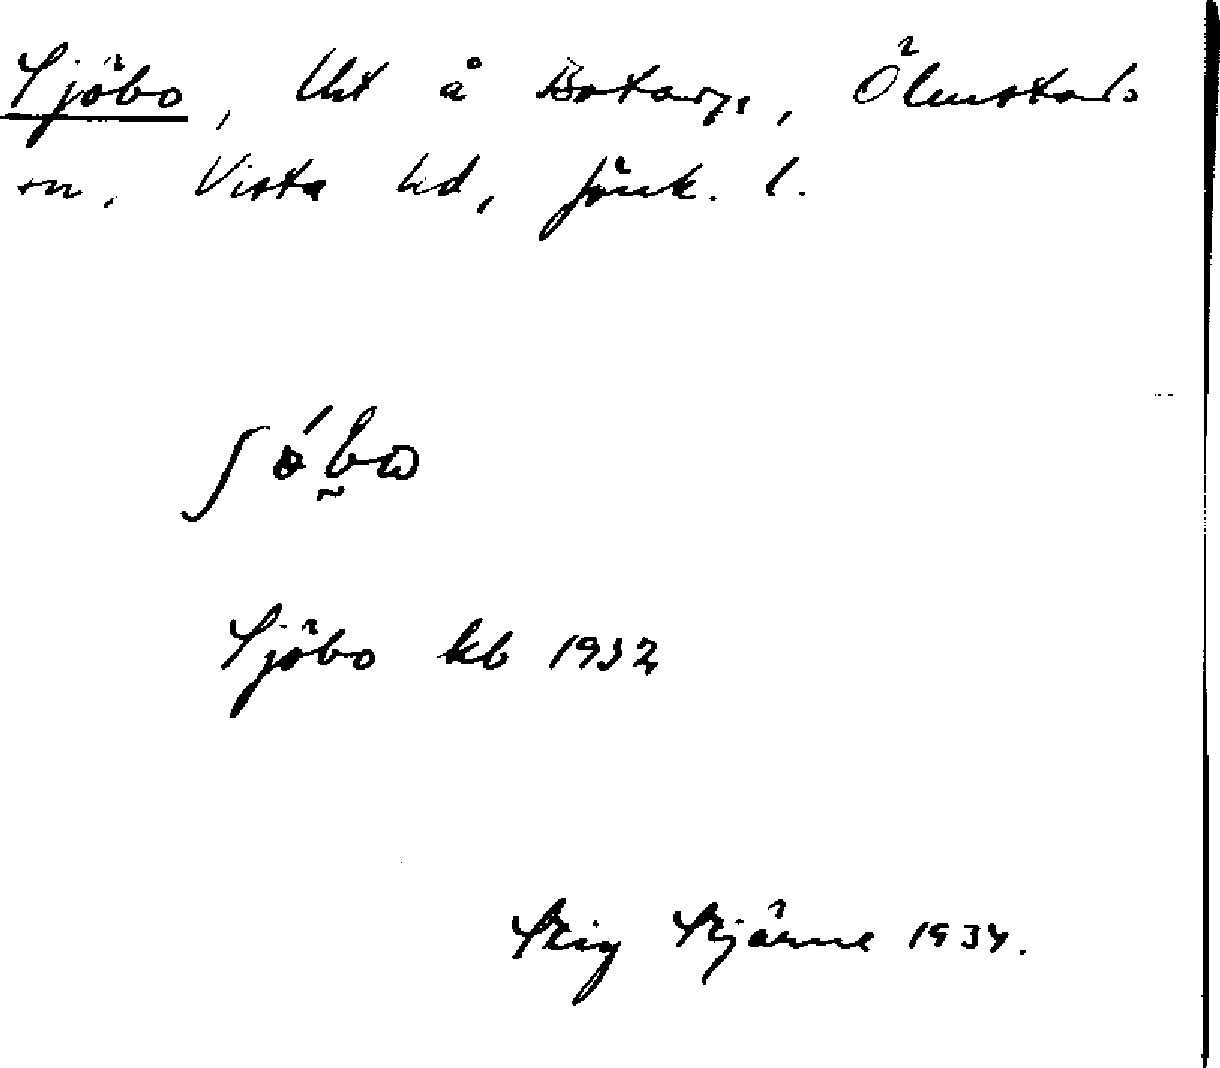 Sjöbo, lht å Botarp, Ölmstads
sn, Vista hd, Jönk. l.
ʃóbω
Sjöbo kb 1932
Stig Stjärne 1934.